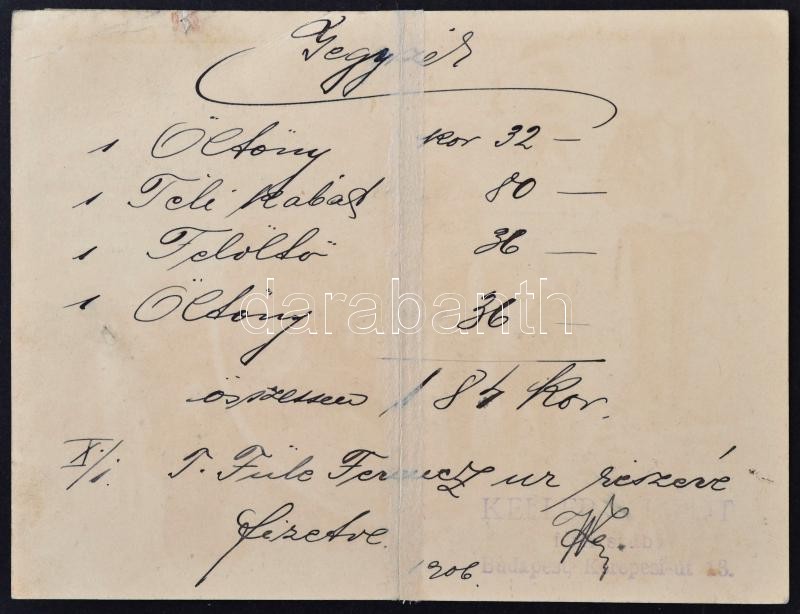 Jegyzék
1 Öltöny kor 32 —
1 Téli kabát 80 —
1 Felöltő 36 —
1 Öltöny 36 —
darabanth
összessen 184 Kor.
X/1. T. Füle Ferencz ur részére
fizetve.
1906.
Budapest, Kerepesi-út 13.